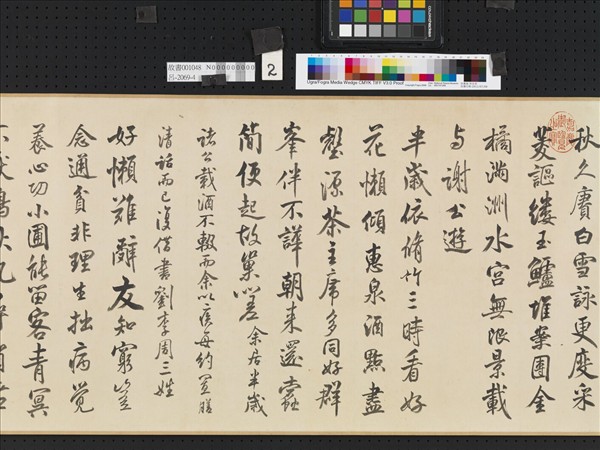 故書001048 N000000000
2
秋久賡白雪詠更度采
菱謳縷玉鱸堆案團金
橘滿洲水宮無限景載
与謝公遊
半歲依脩竹三時看好
花懶傾惠泉酒點盡
壑源茶主席多同好群
峯伴不譁朝来還蠹
簡便起故巢嗟余居半歲
諸公載酒不輟而余以疾每約置膳
清話而已復借書劉李周三姓
好懶難辭友知窮豈
念通貧非理生拙病覺
養心功小圃能留客青冥